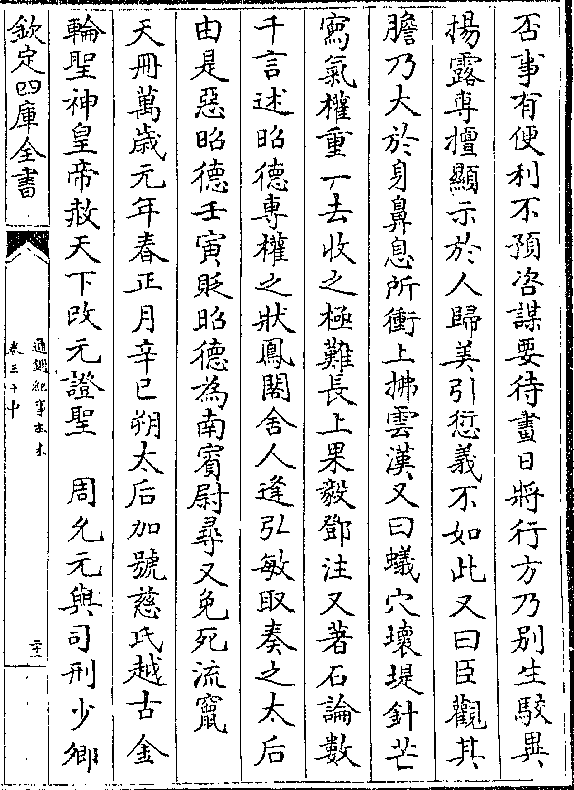 否事有便利不預咨謀要待畫日將行方乃别生駮異
揚露專擅顯示於人歸美引愆義不如此又曰臣觀其
膽乃大於身鼻息所衝上拂雲漢又曰蟻穴壞堤針芒
寫氣權重一去收之極難長上果毅鄧注又著石論數
千言述昭德專權之狀鳳閣舍人逄弘敏取奏之太后
由是惡昭德壬寅貶昭德為南賔尉尋又免死流竄
天冊萬歲元年春正月辛巳朔太后加號慈氏越古金
輪聖神皇帝赦天下改元證聖　周允元與司刑少卿
欽定四庫全書
通鑑紀事本末
卷三十中
二十一